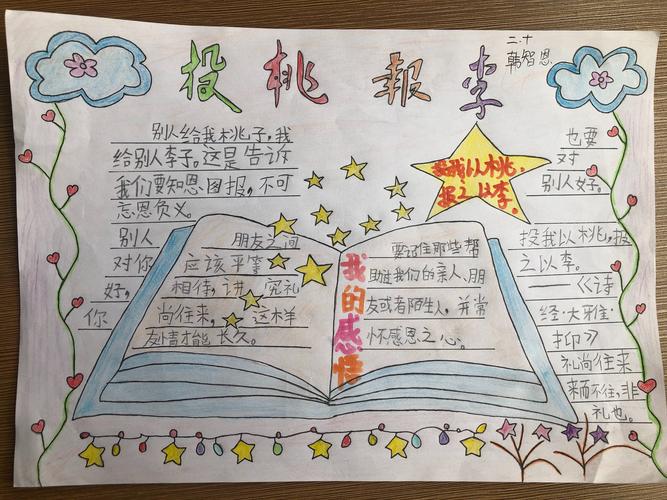 二.十
韩智恩
投桃報李
别人给我桃子,我
给别人李子。这是告诉
我们要知恩图报,不可
忘恩负义。
别人
对你
好,
你
也要
对
别人好。
投我以桃,
报之以李。
朋友之间
应该平等
相待,讲究礼
尚往来,这样
友情才能长久。
我的感悟
要记住那些帮
助过我们的亲人、朋
友或者陌生人,并常
怀感恩之心。
投我以桃,报
之以李。
——《诗
经·大雅·
抑》
礼尚往来
来而不往,非
礼也。